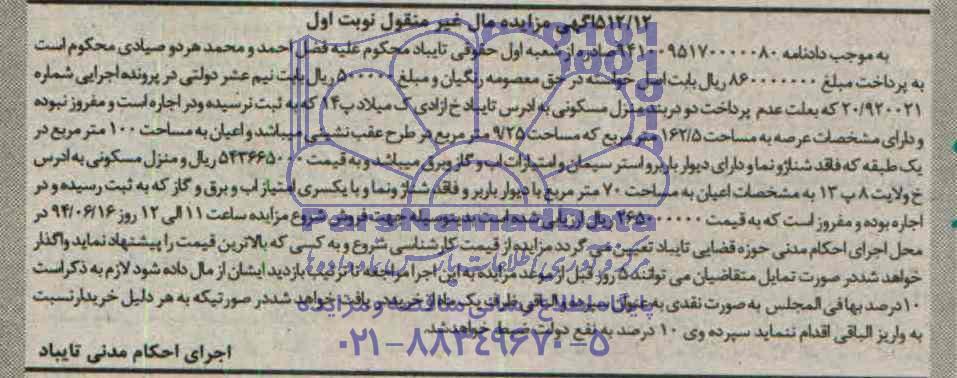 ۵۱۲/۱۲آگهی مزایده مال غیر منقول نوبت اول
به موجب دادنامه ۹۴۱۰۰۹۵۱۷۰۰۰۰۰۸۰ صادره از شعبه اول حقوقی تایباد محکوم علیه فضل احمد و محمد هر دو صیادی محکوم است
به پرداخت مبلغ ۸۶۰۰۰۰۰۰۰ ریال بابت اصل خواسته در حق معصومه رنگیان و مبلغ ۵۰۰۰۰۰ ریال بابت نیم عشر دولتی در پرونده اجرایی شماره
۲۰/۹۲۰۰۲۱ که بعلت عدم پرداخت دو دربند منزل مسکونی به ادرس تایباد خ ازادی ک میلاد پ۱۴ که به ثبت نرسیده ودر اجاره است و مفروز نبوده
و دارای مشخصات عرصه به مساحت ۱۶۲/۵ متر مربع که مساحت ۹/۲۵ متر مربع در طرح عقب نشینی میباشد و اعیان به مساحت ۱۰۰ متر مربع در
یک طبقه که فاقد شناژ و نما و دارای دیوار باربر و استر سیمان و امتیازات اب و گاز و برق میباشد و به قیمت ۵۴۳۶۶۵۰۰۰ ریال و منزل مسکونی به ادرس
خ ولایت ۸ پ ۱۳ به مشخصات اعیان به مساحت ۷۰ متر مربع با دیوار باربر و فاقد شناژ ونما و با یکسری امتیاز اب و برق و گاز که به ثبت رسیده و در
اجاره بوده و مفروز است که به قیمت ۲۶۵۰۰۰۰۰۰ ریال ارزیابی شده است بدینوسیله جهت فروش شروع مزایده ساعت ۱۱ الی ۱۲ روز ۹۴/۰۶/۱۶ در
محل اجرای احکام مدنی حوزه قضایی تایباد تعیین می گردد مزایده از قیمت کارشناسی شروع و به کسی که بالاترین قیمت را پیشنهاد نماید واگذار
خواهد شد در صورت تمایل متقاضیان می توانند ۵ روز قبل از موعد مزایده به این اجرا مراجعه تا ترتیب بازدید ایشان از مال داده شود لازم به ذکر است
۱۰ درصد بها فی المجلس به صورت نقدی به عنوان سپرده والباقی ظرف یک ماه از خریدار دریافت خواهد شد در صورتیکه به هر دلیل خریدار نسبت
به واریز الباقی اقدام ننماید سپرده وی ۱۰ درصد به نفع دولت ضبط خواهد شد.
اجرای احکام مدنی تایباد
ParsNamadData
۰۲۱-۸۸۳۴۹۶۷۰-۵